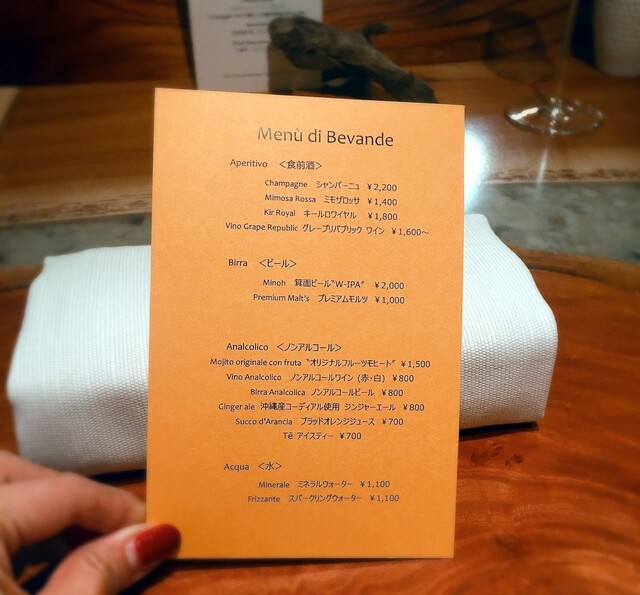 Menù di Bevande
Aperitivo <食前酒>
Champagne シャンパーニュ ¥2,200
Mimosa Rossa ミモザロッサ ¥1,400
Kir Royal キールロワイヤル ¥1,800
Vino Grape Republic グレープリパブリック ワイン ¥1,600～
Birra <ビール>
Minoh 箕面ビール"W-IPA" ¥2,000
Premium Malt's プレミアムモルツ ¥1,000
Analcolico <ノンアルコール>
Mojito originale con fruta "オリジナルフルーツモヒート" ¥1,500
Vino Analcolico ノンアルコールワイン (赤・白) ¥800
Birra Analcolica ノンアルコールビール ¥800
Ginger ale 沖縄産コーディアル使用 ジンジャーエール ¥800
Succo d'Arancia ブラッドオレンジジュース ¥700
Tē アイスティー ¥700
Acqua <水>
Minerale ミネラルウォーター ¥1,100
Frizzante スパークリングウォーター ¥1,100